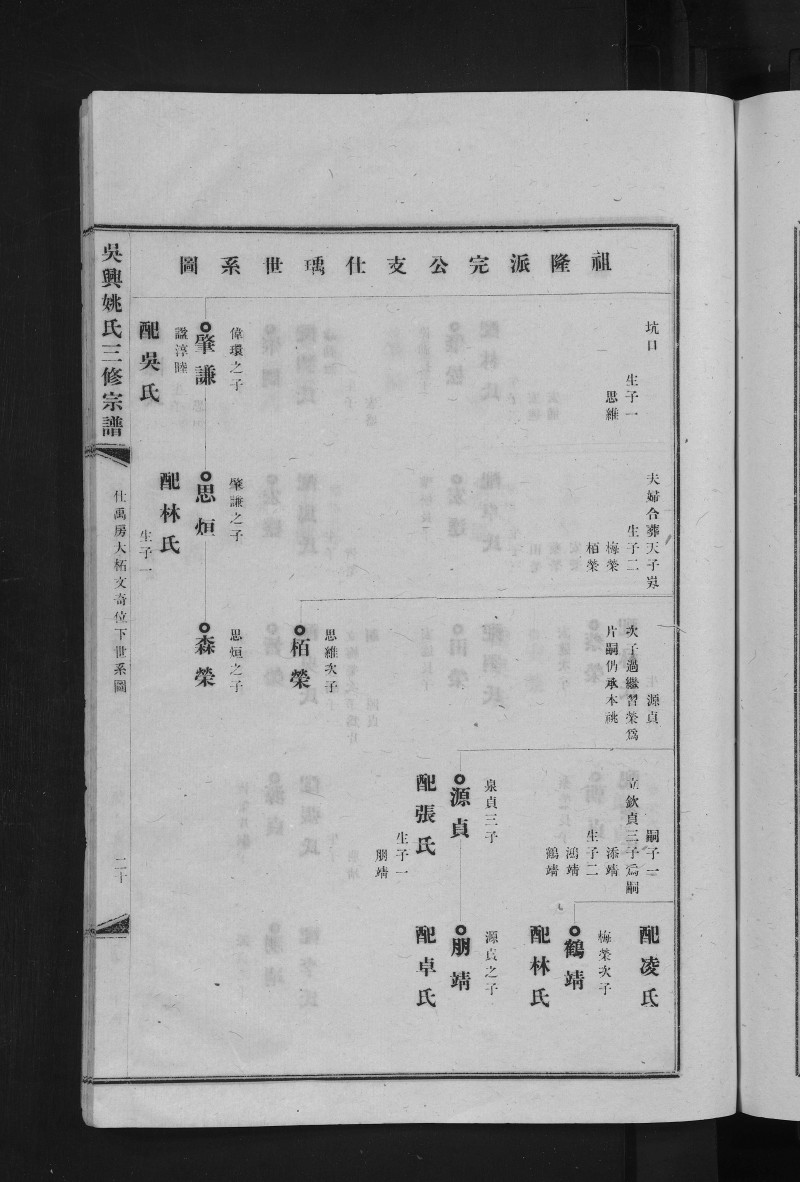 祖隆派完公支仕瑀世系圖
坑口
生子一
思維
偉環之子
肇謙
諡淳睦
配吳氏
夫婦合葬天子岌
生子二
梅榮
栢榮
肇謙之子
思烜
配林氏
生子一
源貞
次子過繼習榮爲
片嗣仍承本祧
思維次子
栢榮
思烜之子
森榮
嗣子一
立欽貞三子爲嗣
添靖
生子二
鴻靖
鶴靖
泉貞三子
源貞
配張氏
生子一
朋靖
配凌氏
梅榮次子
鶴靖
配林氏
源貞之子
朋靖
配卓氏
吳興姚氏三修宗譜
仕禹房大柘文奇位下世系圖
二十